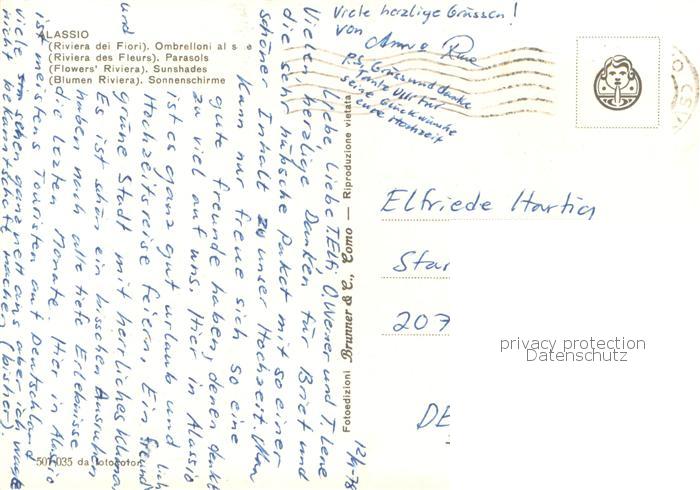 ALASSIO
(Riviera dei Fiori). Ombrelloni al s e
(Riviera des Fleurs). Parasols
(Flowers' Riviera). Sunshades
(Blumen Riviera). Sonnenschirme
12/9-78
Liebe, Liebe T. Elfi, O. Werner und T. Lene
Vielen herzlige Danken für Brief und
die sehr hübsche Paket mit so einer
schöner Inhalt zu unser Hochzeit. Man
kann nur freue sich so eine
gute freunde haben, denen denkt
zu viel auf uns. Hier in Alassio
ist es ganz gut urlaub und
Hochzeitsreise feiern. Ein freundlich
und grüne Stadt mit herrliches Klima.
Es ist schön ein bisschen Ausruhen
haben nach alle tiefe Erlebnisse
die lezten Monate. Hier in Alassio
ist meistens Touristen aut Deutschland
viele sehen ganz nett aus aber ich
nicht bekanntschaft machen (bisher).
Viele herzlige Grüssen!
von
P.S. Grüss und danke
Fritz Uhr für
seine Glückwünsche
eure Hochzeit
Fotoedizioni Brunner & C., Como — Riproduzione vietata
Elfriede Hartig
Star
207
DE
507.035 da fotocolor
privacy protection
Datenschutz